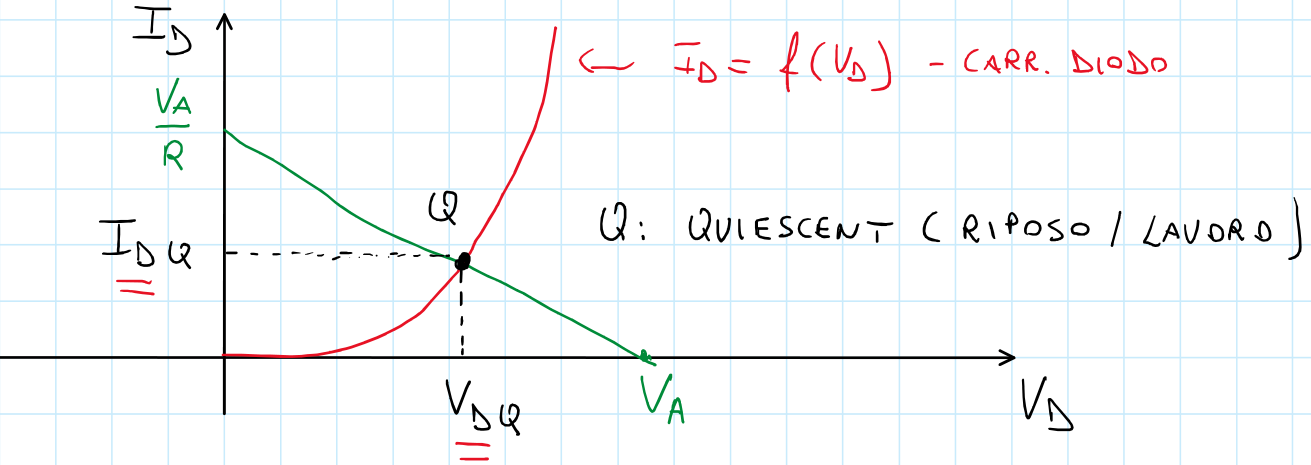 I_D
← I_D = f(V_D) - CARR. DIODO
V_A/R
Q
Q: QUIESCENT (RIPOSO / LAVORO)
I_DQ
V_DQ
V_A
V_D